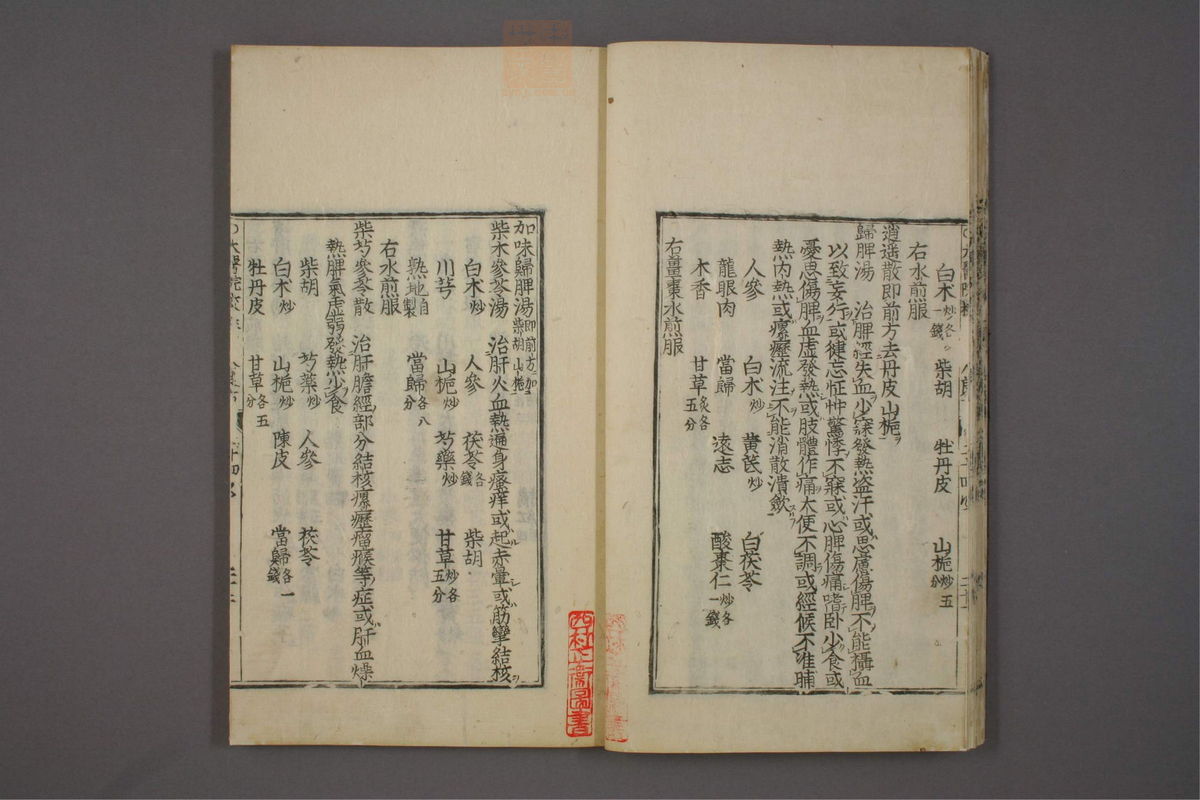 白朮炒各一錢 柴胡 牡丹皮 山梔炒五分
右水煎服
逍遥散即前方去丹皮山梔
歸脾湯 治脾經失血少寐發熱盗汗或思慮傷脾不能攝血
以致妄行或健忘怔忡驚悸不寐或心脾傷痛嗜卧少食或
憂思傷脾血虚發熱或肢體作痛大便不調或經候不准晡
熱内熱或瘰癧流注不能消散潰斂
人參 白朮炒 黄芪炒 白茯苓
龍眼肉 當歸 遠志 酸棗仁炒各一錢
木香 甘草炙各五分
右薑棗水煎服
加味歸脾湯即前方加柴胡山梔
柴朮參苓湯 治肝火血熱遍身瘙痒或起赤暈或筋攣結核
白朮炒 人參 茯苓各錢 柴胡
川芎 山梔炒 芍藥炒 甘草炒各五分
熟地自製 當歸各八分
右水煎服
柴芍參苓散 治肝膽經部分結核瘰癧瘤瘊等症或肝血燥
熱脾氣虚弱發熱少食
柴胡 芍藥炒 人參 茯苓
白朮炒 山梔炒 陳皮 當歸各一錢
牡丹皮 甘草各五分